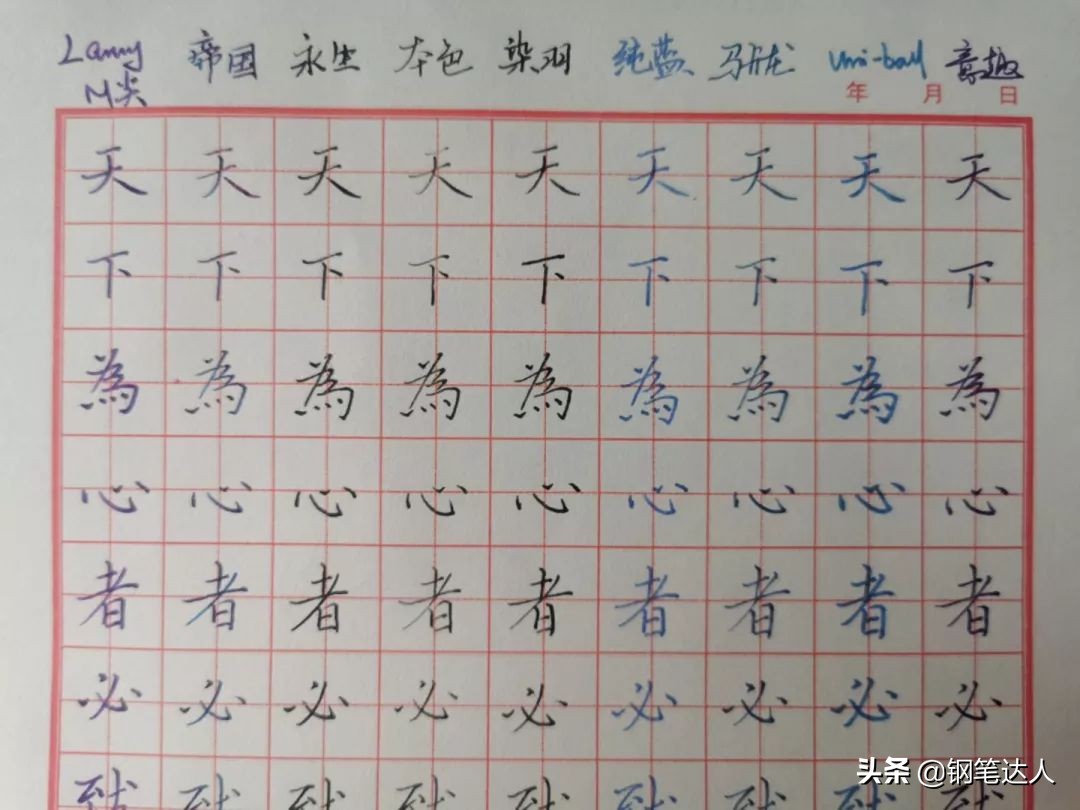 Lamy 帝国 永生 本色 染羽 纯蓝 uni-ball 意趣
M尖 年 月 日
天 天 天 天 天 天 天 天 天
下 下 下 下 下 下 下 下 下
為 為 為 為 為 為 為 為 為
心 心 心 心 心 心 心 心 心
者 者 者 者 者 者 者 者 者
必 必 必 必 必 必 必 必 必
头条 @钢笔达人